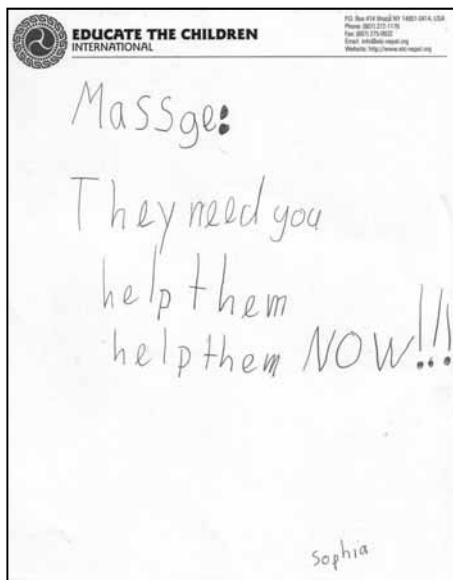 EDUCATE THE CHILDREN
INTERNATIONAL
Phone: (607) 272-1176
Fax: (607) 275-0932
Email: info@etc-nepal.org
Website: http://www.etc-nepal.org
Massge:
They need you
help them
help them NOW!!!
Sophia